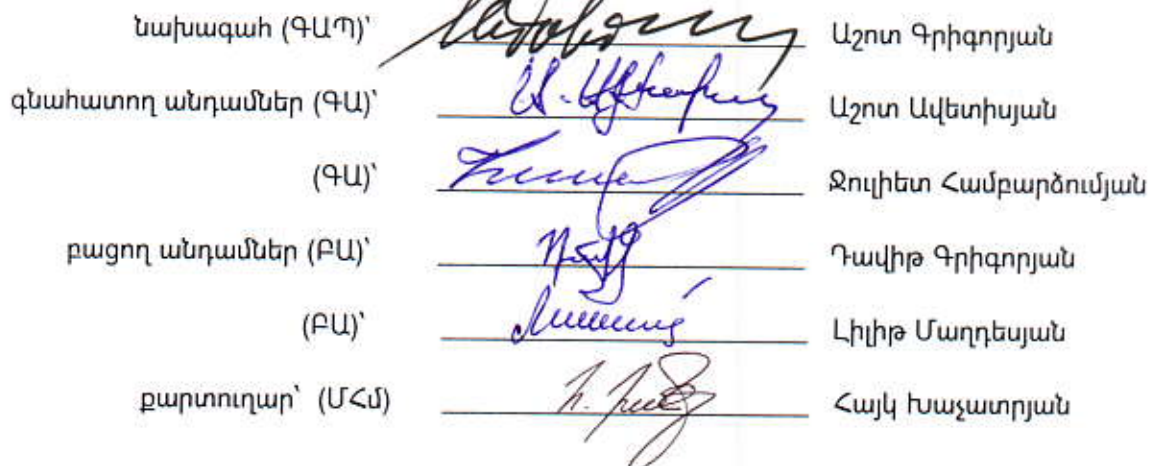 նախագահ (ԳԱՊ)՝ Աշոտ Գրիգորյան
գնահատող անդամներ (ԳԱ)՝ Աշոտ Ավետիսյան
(ԳԱ)՝ Ջուլիետ Համբարձումյան
բացող անդամներ (ԲԱ)՝ Դավիթ Գրիգորյան
(ԲԱ)՝ Լիլիթ Մաղդեսյան
քարտուղար՝ (ՄՀմ) Հայկ Խաչատրյան